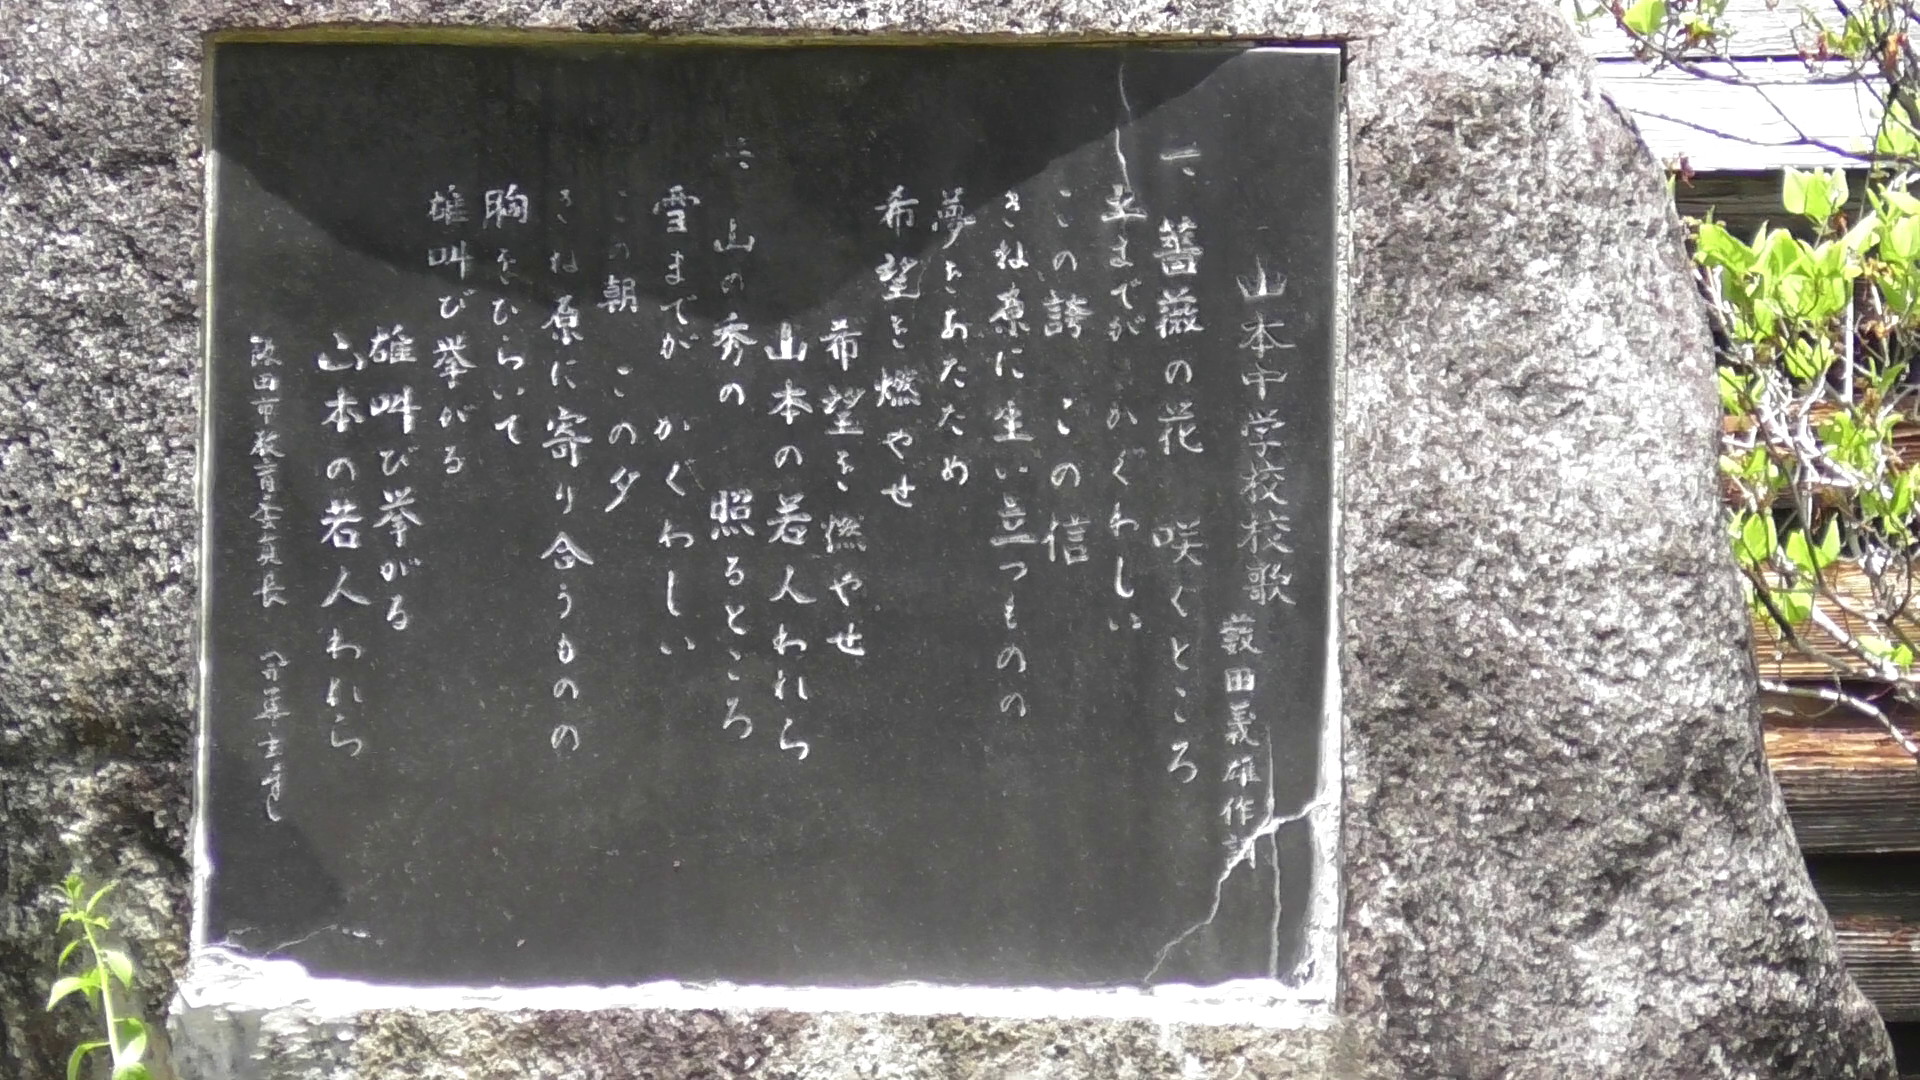 山本中学校校歌
薮田義雄作詞
一、薔薇の花 咲くところ
土までが かぐわしい
この誇 この信
きね原に生い立つものの
夢をあたため
希望を燃やせ
希望を燃やせ
山本の若人われら
二、山の秀の 照るところ
雪までが かぐわしい
この朝 この夕
きね原に寄り合うものの
胸をひらいて
雄叫び挙がる
雄叫び挙がる
山本の若人われら
飯田市教育委員長